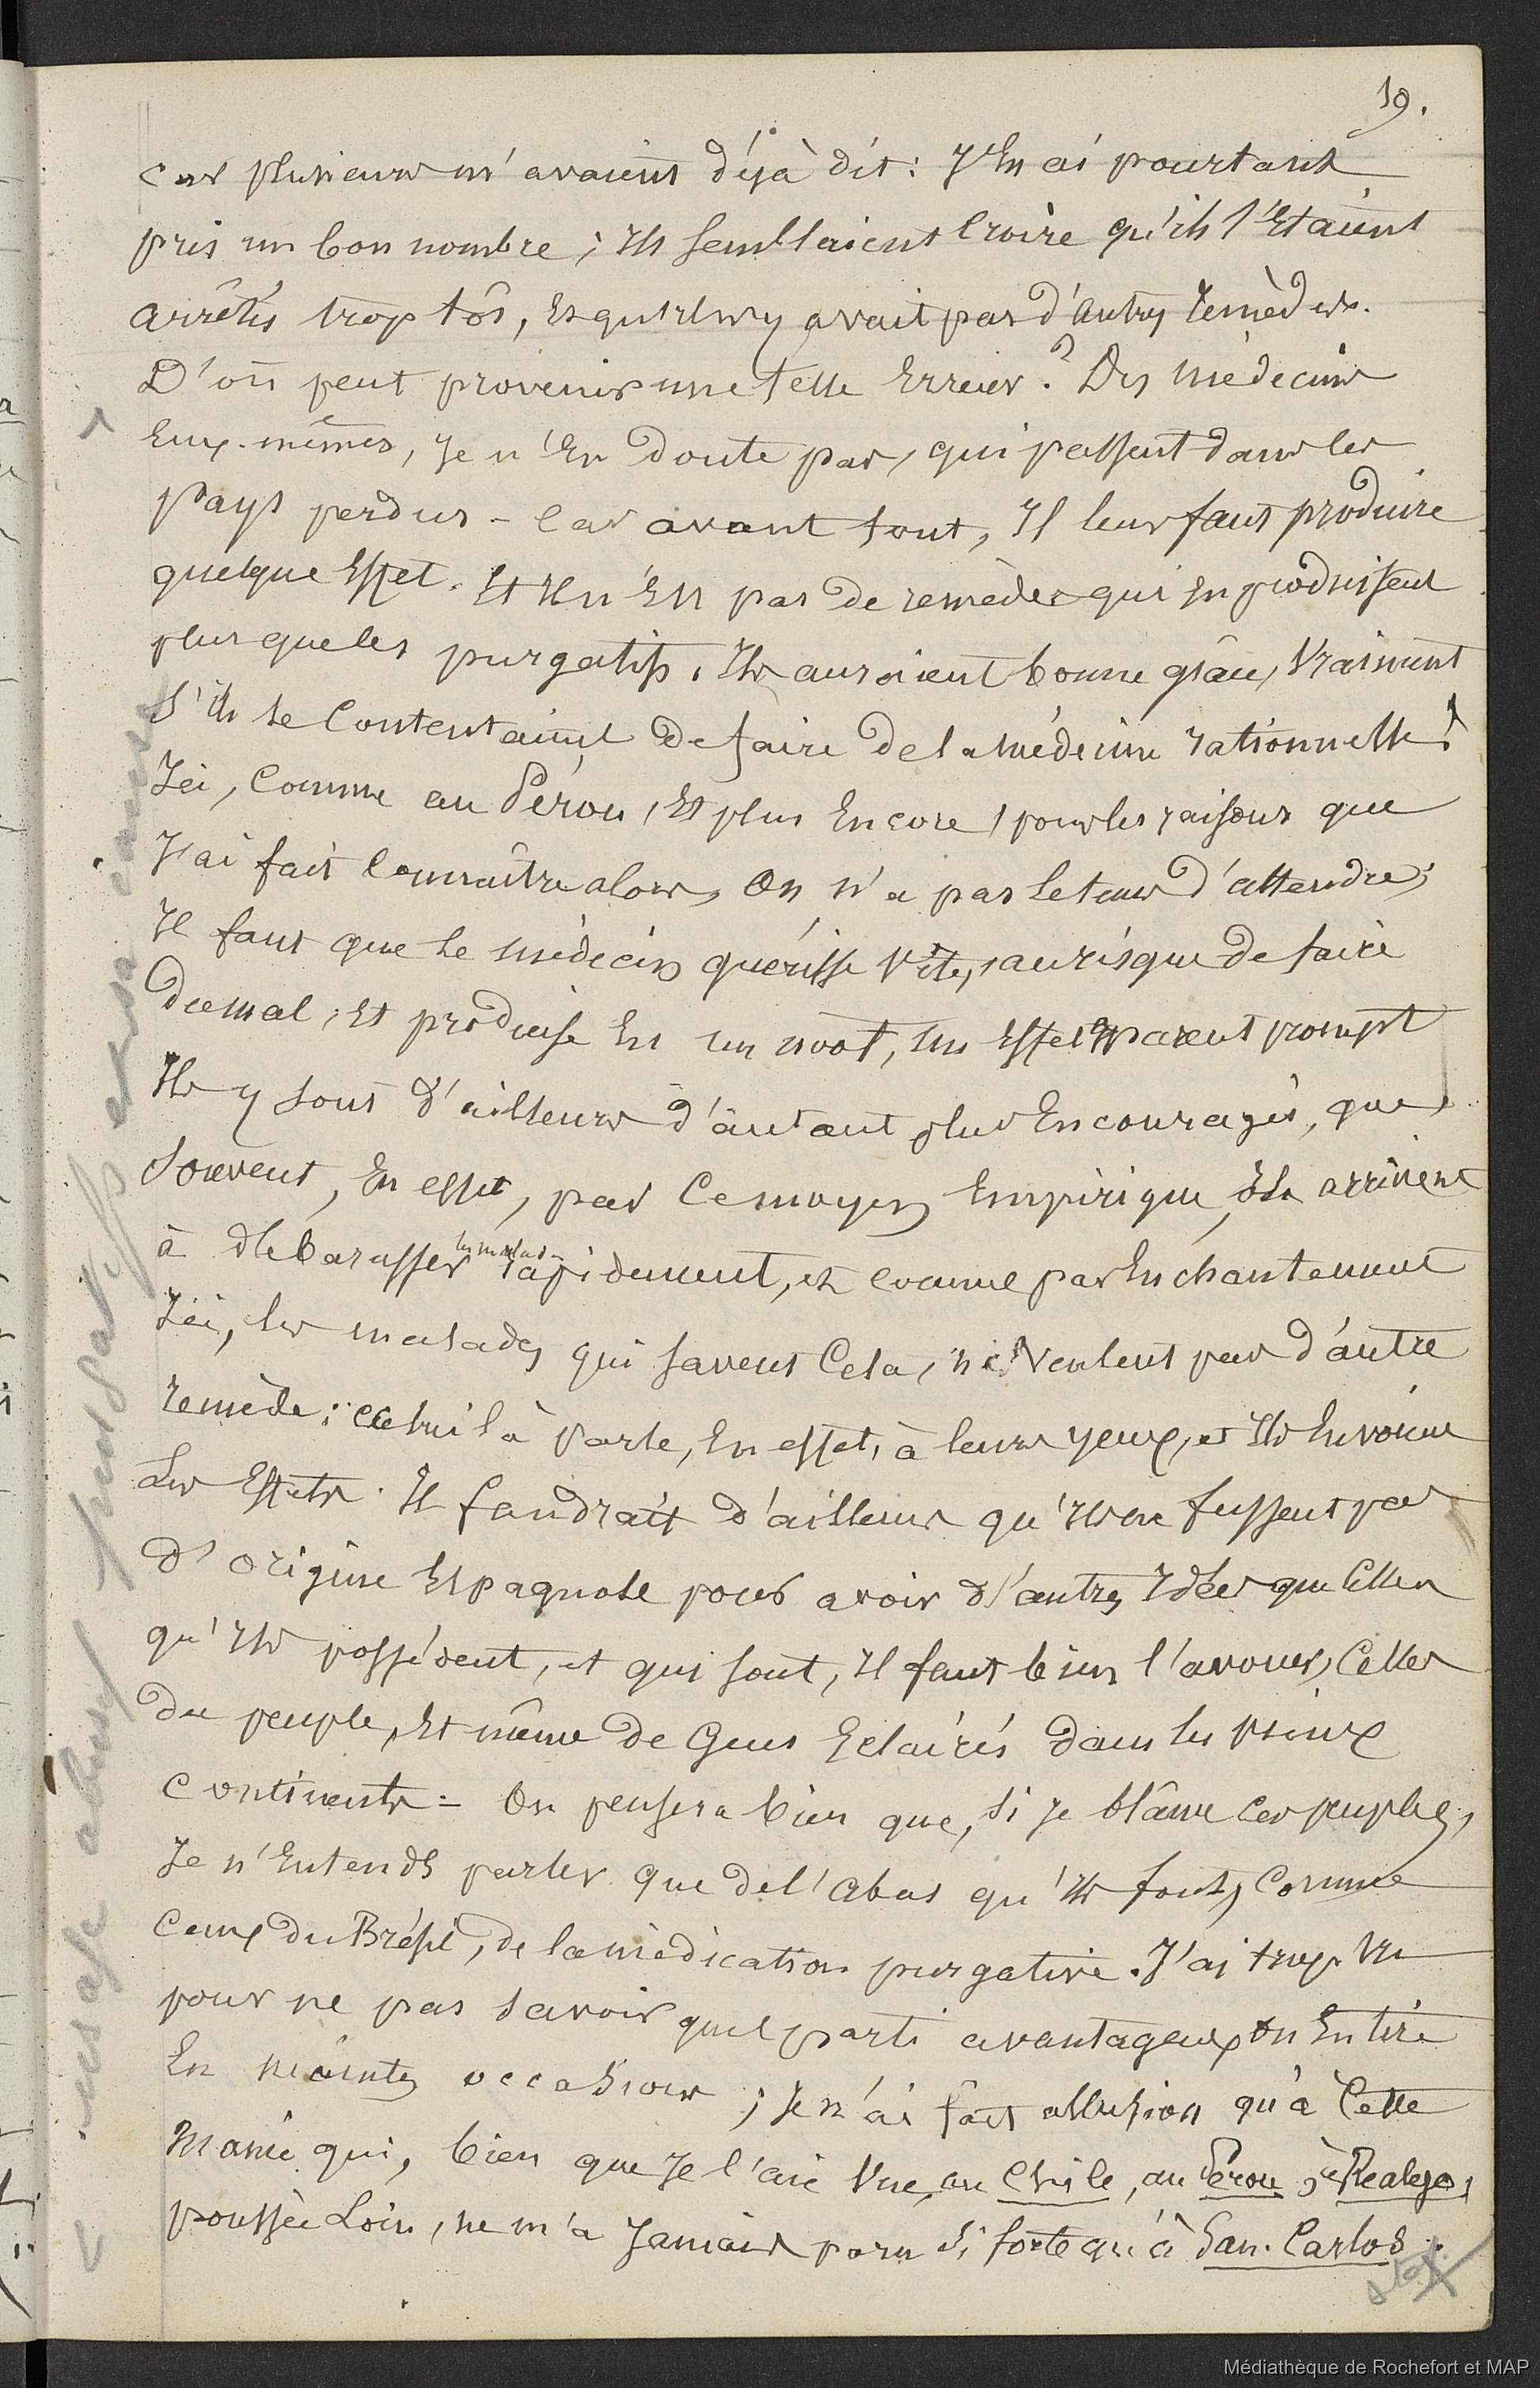 19.
car plusieurs m'avaient déjà dit: J'en ai pourtant
pris un bon nombre; Ils semblaient croire qu'ils s'étaient
arrêtés trop tôt, et qu'il n'y avait pas d'autres remèdes.
D'où peut provenir une telle erreur? Des médecins
eux-mêmes, je n'en doute pas, qui passent dans les
pays perdus - car avant tout, Il leur faut produire
quelque effet. Et il n'est pas de remèdes qui en produisent
plus que les purgatifs. Ils auraient bonne grâce, vraiment
s'ils se contentaient de faire de la médecine rationnelle!
Ici, comme au Pérou, et plus encore, pour les raisons que
J'ai fait connaître alors, on n'a pas le tems d'attendre;
Il faut que le médecin guérisse vite, au risque de faire
du mal, et produise en un mot, un effet apparent prompt
Ils y sont d'ailleurs d'autant plus encouragés, que,
souvent, en effet, par ce moyen empirique, ils arrivent
à débarasser les malades rapidement, et comme par enchantement
Ici, les malades qui savent cela, ne veulent pas d'autre
remède; celui là parle, en effet, à leurs yeux, et Ils en voient
les effets. Il faudrait d'ailleurs qu'ils ne fussent pas
d'origine espagnole pour avoir d'autres idées que celles
qu'ils possèdent, et qui sont, il faut bien l'avouer, celles
du peuple, et même de gens éclairés dans les vieux
continents - On pensera bien que, si je blâme ces peuples,
Je n'entends parler que de l'abus qu'ils font, comme
ceux du Brésil, de la médication purgative. J'ai trop vu
pour ne pas savoir quel parti avantageux on en tire
en maintes occasions; Je n'ai fait allusion qu'à cette
manie qui, bien que je l'aie vue, au Chile, au Pérou, à Realejo,
poussée loin, ne m'a jamais paru si forte qu'à San-Carlos.
abus purgatifs et sa cause
Médiathèque de Rochefort et MAP